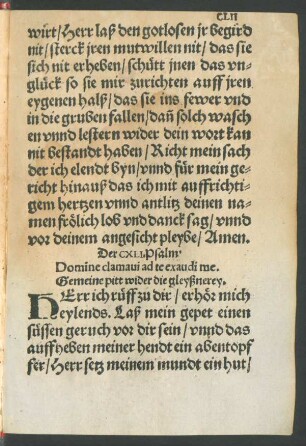 CLII
würt/Herr laß den gotlosen jr begird
nit/sterck jren mutwillen nit/das sie
sich nit erheben/schütt jnen das vn-
glück so sie mir zurichten auff jren
eygenen halß/das sie ins fewer vnd
in die gruben fallen/dañ solch wasch
en vnnd lestern wider dein wort kan
nit bestandt haben/Richt mein sach
der ich elendt byn/vnnd für mein ge-
richt hinauß das ich mit auffrichti-
gem hertzen vnnd antlitz deinen na-
men frölich lob vnd danck sag/vnnd
vor deinem angesicht pleybe/Amen.
Der CXLI Psalm.
Domine clamaui ad te exaudi me.
Gemeine pitt wider die gleyßnerey.
HErr ich rüff zu dir/erhör mich
eylends. Laß mein gepet einen
süssen geruch vor dir sein/vnnd das
auffheben meiner hendt ein abentopf
fer/Herr setz meinem mundt ein hut/